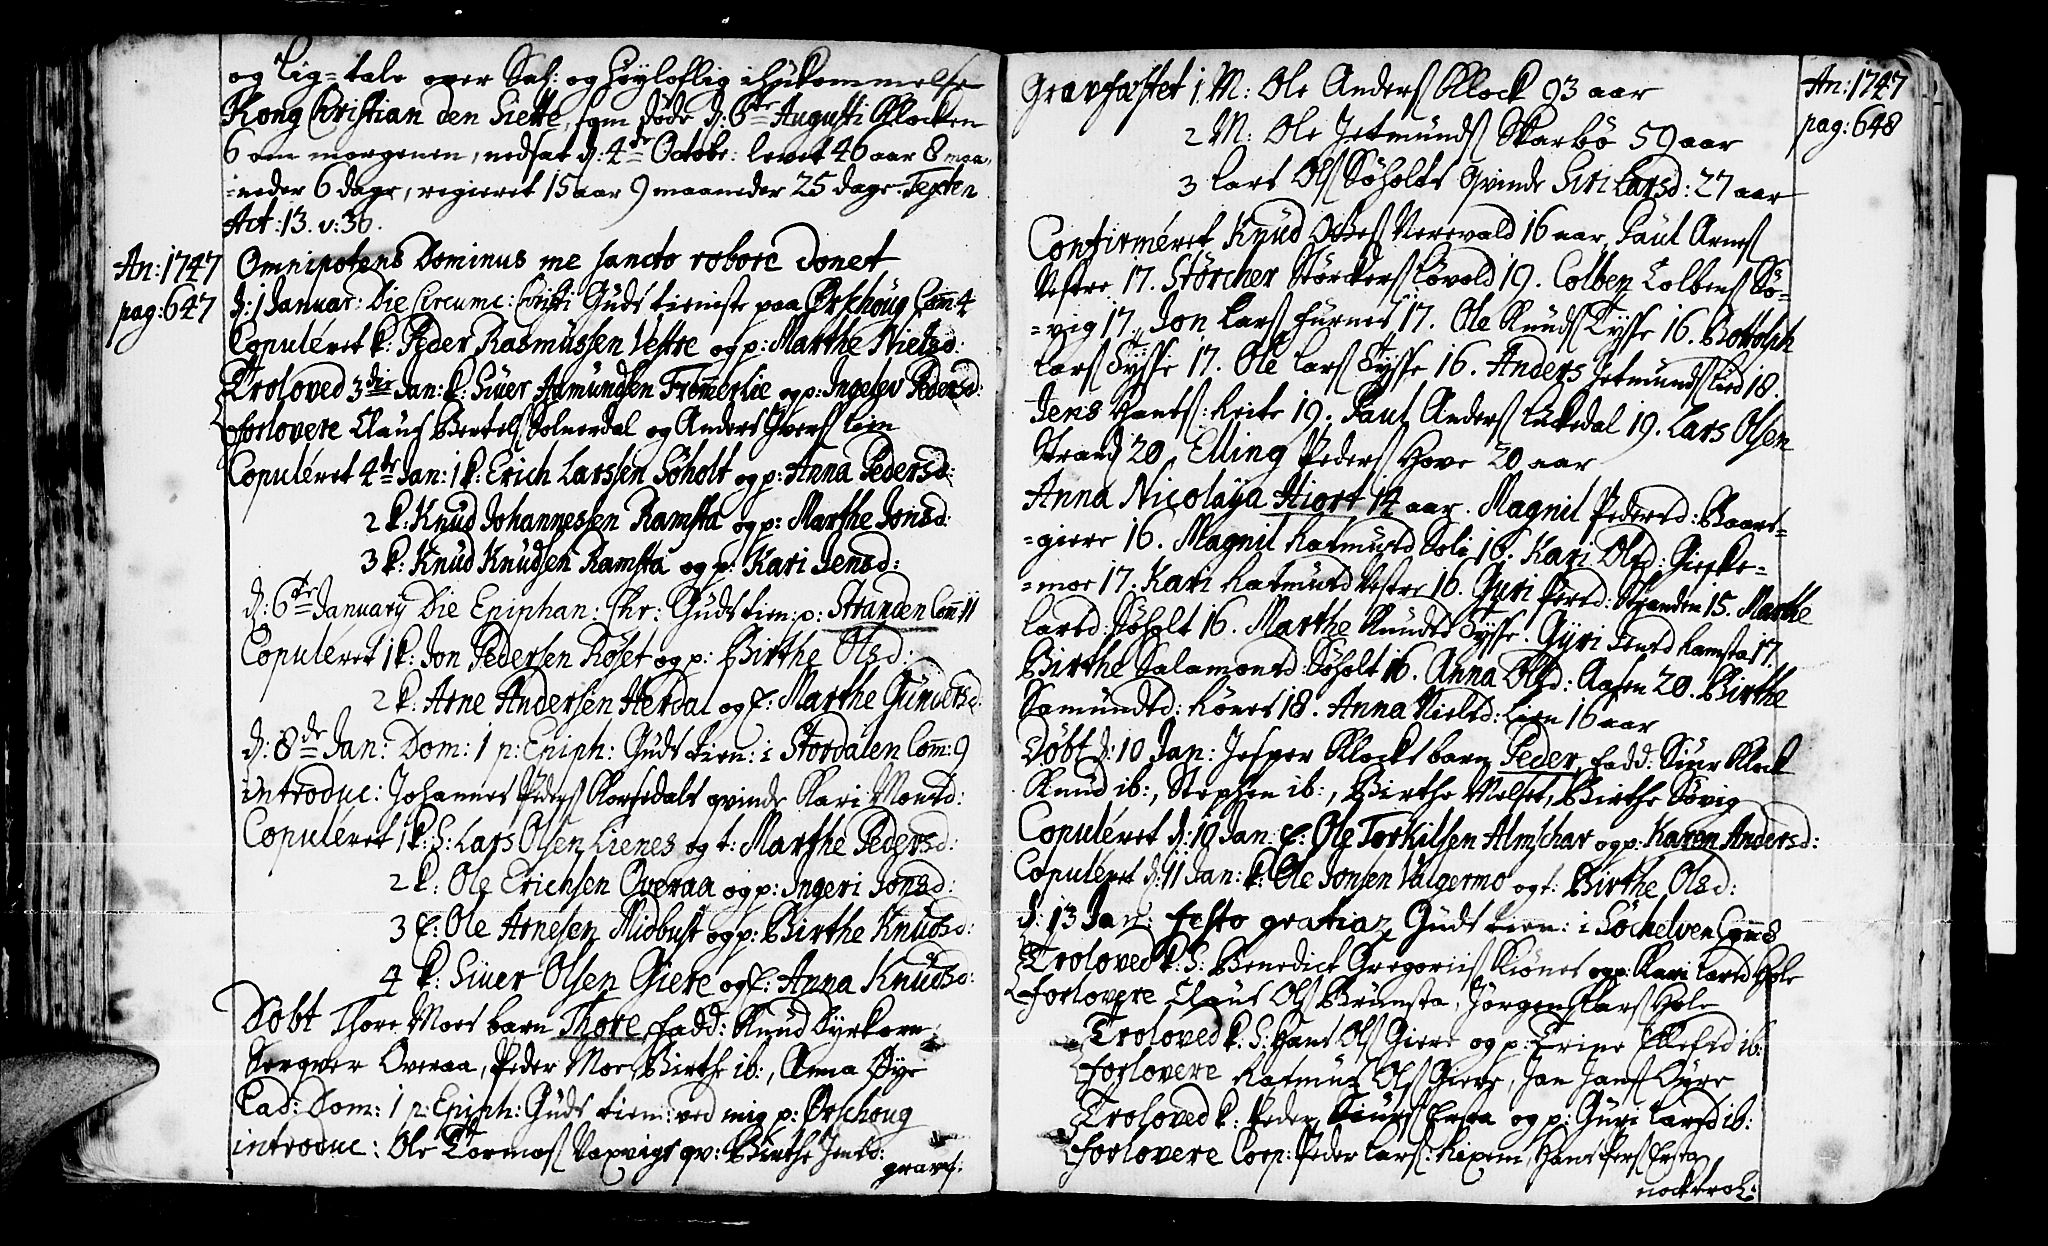 og Lig=tale over Sal: og Høyloflig ihukommelse
Kong Christian den Siette, som døde d: 6te Augusti Klocken
6 om morgenen, nedsat d: 4de Octobr: levet 46 aar 8 maa,
=neder 6 dage, regieret 15 aar 9 maaneder 25 dage. Texten
Act: 13. v: 36.
An: 1747
pag: 647
Omnipotens Dominus me sancto robore donet
d: 1 Januar: Die Circumc: Christi Guds tieniste paa Ørschoug Com̅: 4
Copuléret k: Peder Rasmussen Vestre og p: Marthe Nielsd:
Troloved 3die Jan: k: Siver Asmundsen Frømmerlie og p: Ingelev Pedersd:
forlovere Claus Bertels Solnørdal og Anders Ivers Lien
Copuléret 4de Jan: 1 k: Erich Larssen Søholt og p: Anna Pedersd:
2 k: Knud Johannessen Ramsta og p: Marthe Jonsd:
3 k: Knud Knudsen Ramsta og p: Kari Jensd:
d: 6te January Die Epiphan: Chr: Guds tien: p: Stranden Com: 11
Copuléret 1 k: Jon Pedersen Røset og p: Birthe Olsd:
2 k: Arne Andersen Herdal og E: Marthe Gundersd:
d: 8de Jan: Dom: 1 p: Epiph: Guds tien: i Stordalen Com̅: 9
introduc: Johannes Peders Korsedals qvinde Kari Monsd:
Copuléret 1 k: S: Lars Olsen Lienes og t: Marthe Pedersd:
2 k: Ole Erichsen Overaa og p: Ingeri Jonsd:
3 E: Ole Arnesen Midbust og p: Birthe Knudsd:
4 k: Siver Olsen Giere og E: Anna Knudsd:
Døbt Thore Moes barn Thore, fadd: Knud Dyrkorn,
Overaa, Peder Moe, Birthe ib:, Anna Dye
Ead: Dom: 1 p: Epiph: Guds tien: ved mig p: Ørschoug
introduc: Ole Tormos Vaxvigs qv: Birthe Jensd:
gravf:
An: 1747
pag: 648
Gravfæstet 1. M: Ole Anders Klock 93 aar
2 M: Ole Jetmunds Skarbø 59 aar
3 Lars Ols Søholts qvinde Siri Larsd: 27 aar
Confirméret Knud Verevald 16 aar, Paul Arnes
Vestre 17. Störcher Störchers Løvold 19. Colben Colbens Sø-
=vig 17. Jon Lars Furnes 17. Ole Knuds Tysse 16. Bottolph
Lars Tysse 17. Ole Lars Tysse 16. Anders Jetmunds Lied 18.
Jens Hans: Leite 19. Paul Anders Lukedal 19. Lars Olsen
Strand 20. Elling Peders Hove 20 aar
Anna Nicolaya Hiort 14 aar. Magnil Pedersd: Baars-
=giere 16. Magnil Rasmusd Soli 16. Kari Olsd: Gieske-
=moe 17. Kari Rasmusd Vestre 16. Gyri Persd: Stranden 15. Marthe
Larsd: Søholt 16. Marthe Knudsd Tysse. Gyri Jensd Ramsta 17.
Birthe Salamonsd: Søholt 16. Anna Olsd: Aasen 20. Birthe
Samundsd: Rønes 18. Anna Nielsd: Lien 16 aar
Døbt d: 10 Jan: Jesper Klocks barn Peder, fadd: Siur Klock
Knud ib:, Stephen ib:, Birthe Melset, Birthe Søvig
Copuléret d: 10 Jan: E: Ole Torkilsen Almschar og p: Karen Andersd:
Copuléret d: 11 Jan: k: Ole Jonsen Valgermo og t: Birthe Olsd:
d: 13 Jan: Festo gratiar, Guds tien: i Söchelven Com̅ 8
Troloved k: S: Benedict Gregoriis Kiønes og p: Kari Larsd Hole
forlovere Claus Ols Brunsta, Jørgen Lars Hole
Troloved k: S: Hans Ols Giere og p: Trine Ellefsd ib:
forlovere Rasmus Ols Giere, Jan Jans Dyre
Troloved k: Peder Siurs Ersta og p: Guri Larsd ib:
forlovere Corp: Peder Lars: Rixem, Hans Pers Ersta
nock trol: